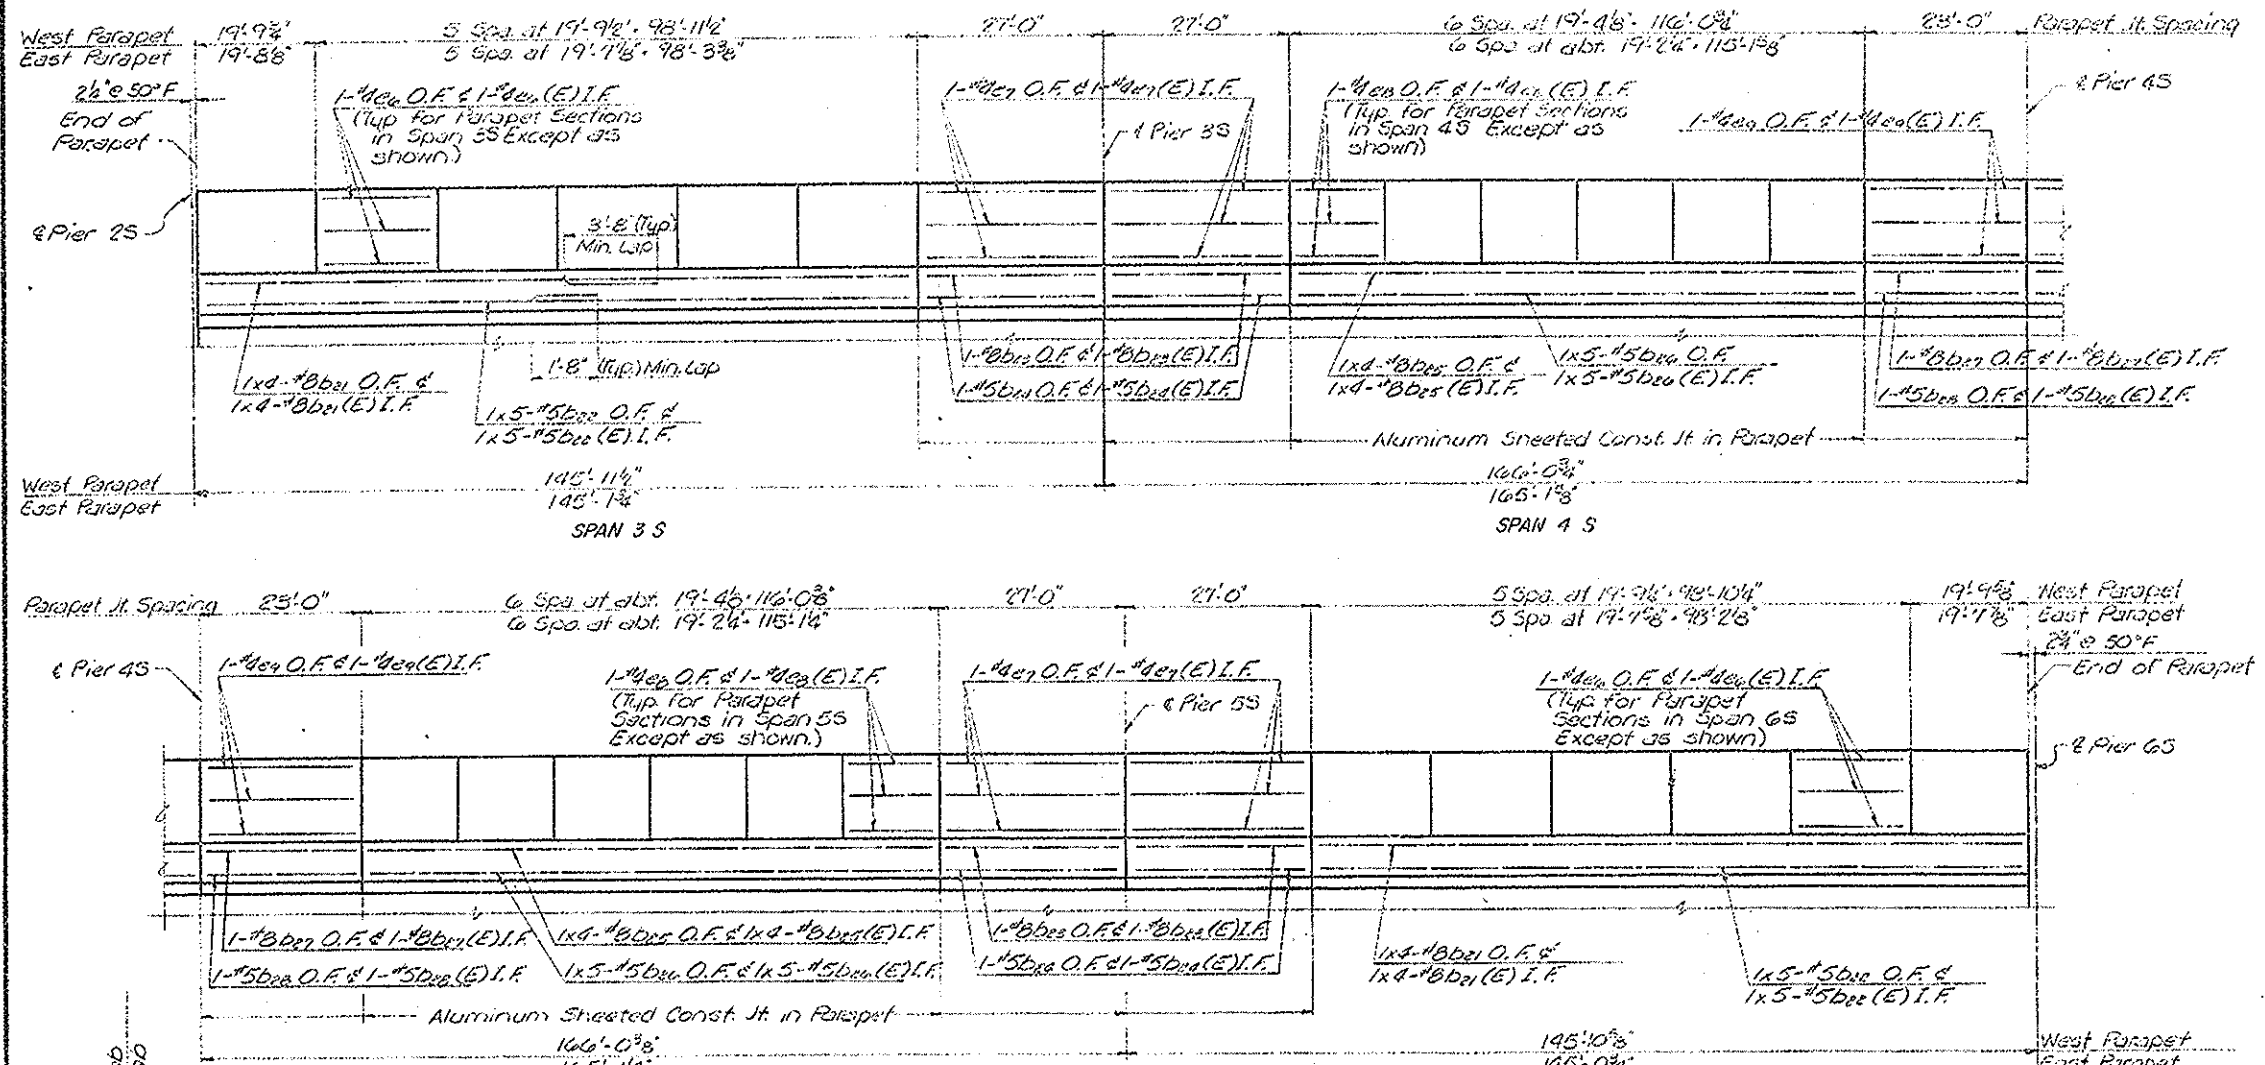 West Parapet 19'-9¾" 5 Spa. at 19'-9½" = 98'-11½" 27'-0" 27'-0" 6 Spa. at 19'-4⅛" = 116'-0¾" 23'-0" Parapet Jt. Spacing
East Parapet 19'-8⅛" 5 Spa. at 19'-7⅞" = 98'-3⅜" 6 Spa. at abt. 19'-2¼" = 115'-1⅝"
2½" @ 50°F
End of
Parapet
1-#4e6 O.F. & 1-#4e6(E) I.F.
(Typ. for Parapet Sections
in Span 3S Except as
shown)
1-#4e7 O.F. & 1-#4e7(E) I.F.
℄ Pier 3S
1-#4e8 O.F. & 1-#4e8(E) I.F.
(Typ. for Parapet Sections
in Span 4S Except as
shown)
1-#4e9 O.F. & 1-#4e9(E) I.F.
℄ Pier 4S
℄ Pier 2S
3'-8" (Typ.)
Min. Lap
1'-8" (Typ.) Min. Lap
1x4-#8b21 O.F. &
1x4-#8b21(E) I.F.
1x5-#5b22 O.F. &
1x5-#5b22(E) I.F.
1-#8b23 O.F. & 1-#8b23(E) I.F.
1-#5b24 O.F. & 1-#5b24(E) I.F.
1x4-#8b25 O.F. &
1x4-#8b25(E) I.F.
1x5-#5b26 O.F.
1x5-#5b26(E) I.F.
1-#8b27 O.F. & 1-#8b27(E) I.F.
1-#5b28 O.F. & 1-#5b28(E) I.F.
Aluminum Sheeted Const. Jt. in Parapet
West Parapet 145'-11½" 166'-0¾"
East Parapet 145'-1¾" 165'-1⅝"
SPAN 3 S SPAN 4 S
Parapet Jt. Spacing 23'-0" 6 Spa. at abt. 19'-4⅛" = 116'-0⅜" 27'-0" 27'-0" 5 Spa. at 19'-9¼" = 98'-10¼" 19'-9⅝" West Parapet
6 Spa. at abt. 19'-2¼" = 115'-1¼" 5 Spa. at 19'-7⅝" = 98'-2⅛" 19'-7⅞" East Parapet
2¾" @ 50°F
End of Parapet
℄ Pier 4S
1-#4e9 O.F. & 1-#4e9(E) I.F.
1-#4e8 O.F. & 1-#4e8(E) I.F.
(Typ. for Parapet
Sections in Span 5S
Except as shown.)
1-#4e7 O.F. & 1-#4e7(E) I.F.
℄ Pier 5S
1-#4e6 O.F. & 1-#4e6(E) I.F.
(Typ. for Parapet
Sections in Span 6S
Except as shown)
℄ Pier 6S
1-#8b27 O.F. & 1-#8b27(E) I.F.
1-#5b28 O.F. & 1-#5b28(E) I.F.
1x4-#8b25 O.F. & 1x4-#8b25(E) I.F.
1x5-#5b26 O.F. & 1x5-#5b26(E) I.F.
1-#8b23 O.F. & 1-#8b23(E) I.F.
1-#5b24 O.F. & 1-#5b24(E) I.F.
1x4-#8b21 O.F. &
1x4-#8b21(E) I.F.
1x5-#5b22 O.F. &
1x5-#5b22(E) I.F.
Aluminum Sheeted Const. Jt. in Parapet
166'-0⅜" 145'-10⅜" West Parapet
145'-0¾" East Parapet